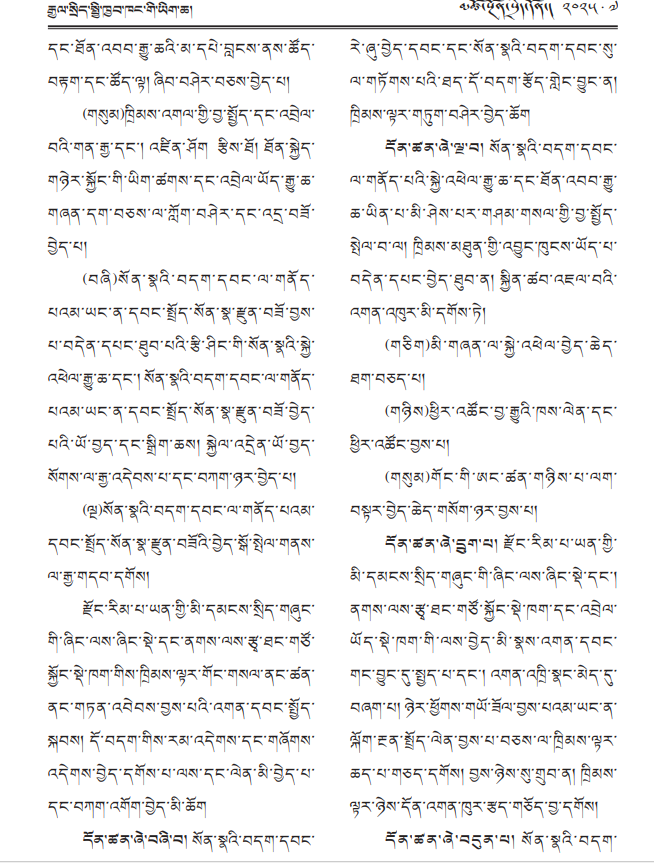 རྒྱལ་སྲིད་སྤྱི་ཁྱབ་ཁང་གི་ཡིག་ཆ།
༢༠༢༥ · ༧
དང་ཐོན་འབབ་རྒྱུ་ཆའི་མ་དཔེ་བླངས་ནས་ཚོད་
བརྟག་དང་ཚོད་ལྟ། ཞིབ་བཤེར་བཅས་བྱེད་པ།
(གསུམ)ཁྲིམས་འགལ་གྱི་བྱ་སྤྱོད་དང་འབྲེལ་
བའི་གན་རྒྱ་དང་། འཛིན་ཤོག རྩིས་ཐོ། ཐོན་སྐྱེད་
གཉེར་སྐྱོང་གི་ཡིག་ཚགས་དང་འབྲེལ་ཡོད་རྒྱུ་ཆ་
གཞན་དག་བཅས་ལ་ཀློག་བཤེར་དང་འདྲ་བཟོ་
བྱེད་པ།
(བཞི)སོན་སྣའི་བདག་དབང་ལ་གནོད་
པའམ་ཡང་ན་དབང་སྤྲོད་སོན་སྣ་རྫུན་བཟོ་བྱས་
པ་བདེན་དཔང་ཐུབ་པའི་རྩི་ཤིང་གི་སོན་སྣའི་སྐྱེ་
འཕེལ་རྒྱུ་ཆ་དང་། སོན་སྣའི་བདག་དབང་ལ་གནོད་
པའམ་ཡང་ན་དབང་སྤྲོད་སོན་སྣ་རྫུན་བཟོ་བྱེད་
པའི་ཡོ་བྱད་དང་སྒྲིག་ཆས། སྐྱེལ་འདྲེན་ཡོ་བྱད་
སོགས་ལ་རྒྱ་འདེབས་པ་དང་བཀག་ཉར་བྱེད་པ།
(ལྔ)སོན་སྣའི་བདག་དབང་ལ་གནོད་པའམ་
དབང་སྤྲོད་སོན་སྣ་རྫུན་བཟོའི་བྱེད་སྒོ་སྤེལ་གནས་
ལ་རྒྱ་གདབ་དགོས།
རྫོང་རིམ་པ་ཡན་གྱི་མི་དམངས་སྲིད་གཞུང་
གི་ཞིང་ལས་ཞིང་སྡེ་དང་ནགས་ལས་རྩྭ་ཐང་གཙོ་
སྐྱོང་སྡེ་ཁག་གིས་ཁྲིམས་ལྟར་གོང་གསལ་ནང་ཚན་
ནང་གཏན་འབེབས་བྱས་པའི་འགན་དབང་སྤྱོད་
སྐབས། དོ་བདག་གིས་རམ་འདེགས་དང་གཞོགས་
འདེགས་བྱེད་དགོས་པ་ལས་དང་ལེན་མི་བྱེད་པ་
དང་བཀག་འགོག་བྱེད་མི་ཆོག
དོན་ཚན་ཞེ་བཞི་བ། སོན་སྣའི་བདག་དབང་
རེ་ཞུ་བྱེད་དབང་དང་སོན་སྣའི་བདག་དབང་སུ་
ལ་གཏོགས་པའི་ཐད་དོ་བདག་རྩོད་གླེང་བྱུང་ན།
ཁྲིམས་ལྟར་གཏུག་བཤེར་བྱེད་ཆོག
དོན་ཚན་ཞེ་ལྔ་བ། སོན་སྣའི་བདག་དབང་
ལ་གནོད་པའི་སྐྱེ་འཕེལ་རྒྱུ་ཆ་དང་ཐོན་འབབ་རྒྱུ་
ཆ་ཡིན་པ་མི་ཤེས་པར་གཤམ་གསལ་གྱི་བྱ་སྤྱོད་
སྤེལ་བ་ལ། ཁྲིམས་མཐུན་གྱི་འབྱུང་ཁུངས་ཡོད་པ་
བདེན་དཔང་བྱེད་ཐུབ་ན། སྐྱིན་ཚབ་འཇལ་བའི་
འགན་འཁུར་མི་དགོས་ཏེ།
(གཅིག)མི་གཞན་ལ་སྐྱེ་འཕེལ་བྱེད་ཆེད་
ཐག་བཅད་པ།
(གཉིས)ཕྱིར་འཚོང་བྱ་རྒྱུའི་ཁས་ལེན་དང་
ཕྱིར་འཚོང་བྱས་པ།
(གསུམ)གོང་གི་ཨང་ཚན་གཉིས་པ་ལག་
བསྟར་བྱེད་ཆེད་གསོག་ཉར་བྱས་པ།
དོན་ཚན་ཞེ་དྲུག་པ། རྫོང་རིམ་པ་ཡན་གྱི་
མི་དམངས་སྲིད་གཞུང་གི་ཞིང་ལས་ཞིང་སྡེ་དང་།
ནགས་ལས་རྩྭ་ཐང་གཙོ་སྐྱོང་སྡེ་ཁག་དང་འབྲེལ་
ཡོད་སྡེ་ཁག་གི་ལས་བྱེད་མི་སྣས་འགན་དབང་
གང་བྱུང་དུ་སྤྱད་པ་དང་། འགན་འཁྲི་སྣང་མེད་དུ་
བཞག་པ། ཉེར་ཕྱོགས་གཡོ་ཟོལ་བྱས་པའམ་ཡང་ན་
ལྐོག་རྔན་སྤྲོད་ལེན་བྱས་པ་བཅས་ལ་ཁྲིམས་ལྟར་
ཆད་པ་གཅད་དགོས། བྱས་ཉེས་སུ་གྲུབ་ན། ཁྲིམས་
ལྟར་ཉེས་དོན་འགན་ཁུར་རྩད་གཅོད་བྱ་དགོས།
དོན་ཚན་ཞེ་བདུན་པ། སོན་སྣའི་བདག་